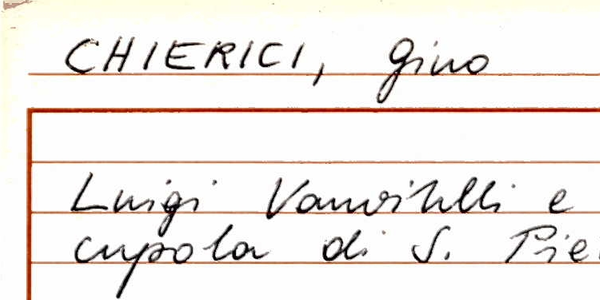 CHIERICI, Gino
Luigi Vanvitelli e
cupola di S. Pie